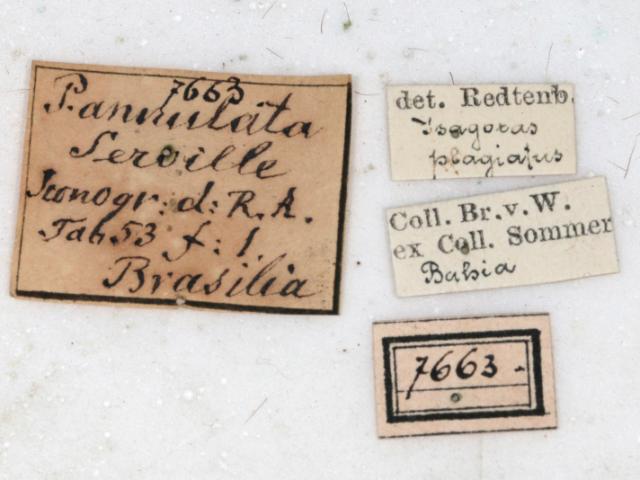 7663
P. annulata
Serville
Iconogr: d: R. A.
Tab. 53 f: 1
Brasilia
det. Redtenb.
Isagoras
plagiatus
Coll. Br. v. W.
ex Coll. Sommer
Bahia
7663.